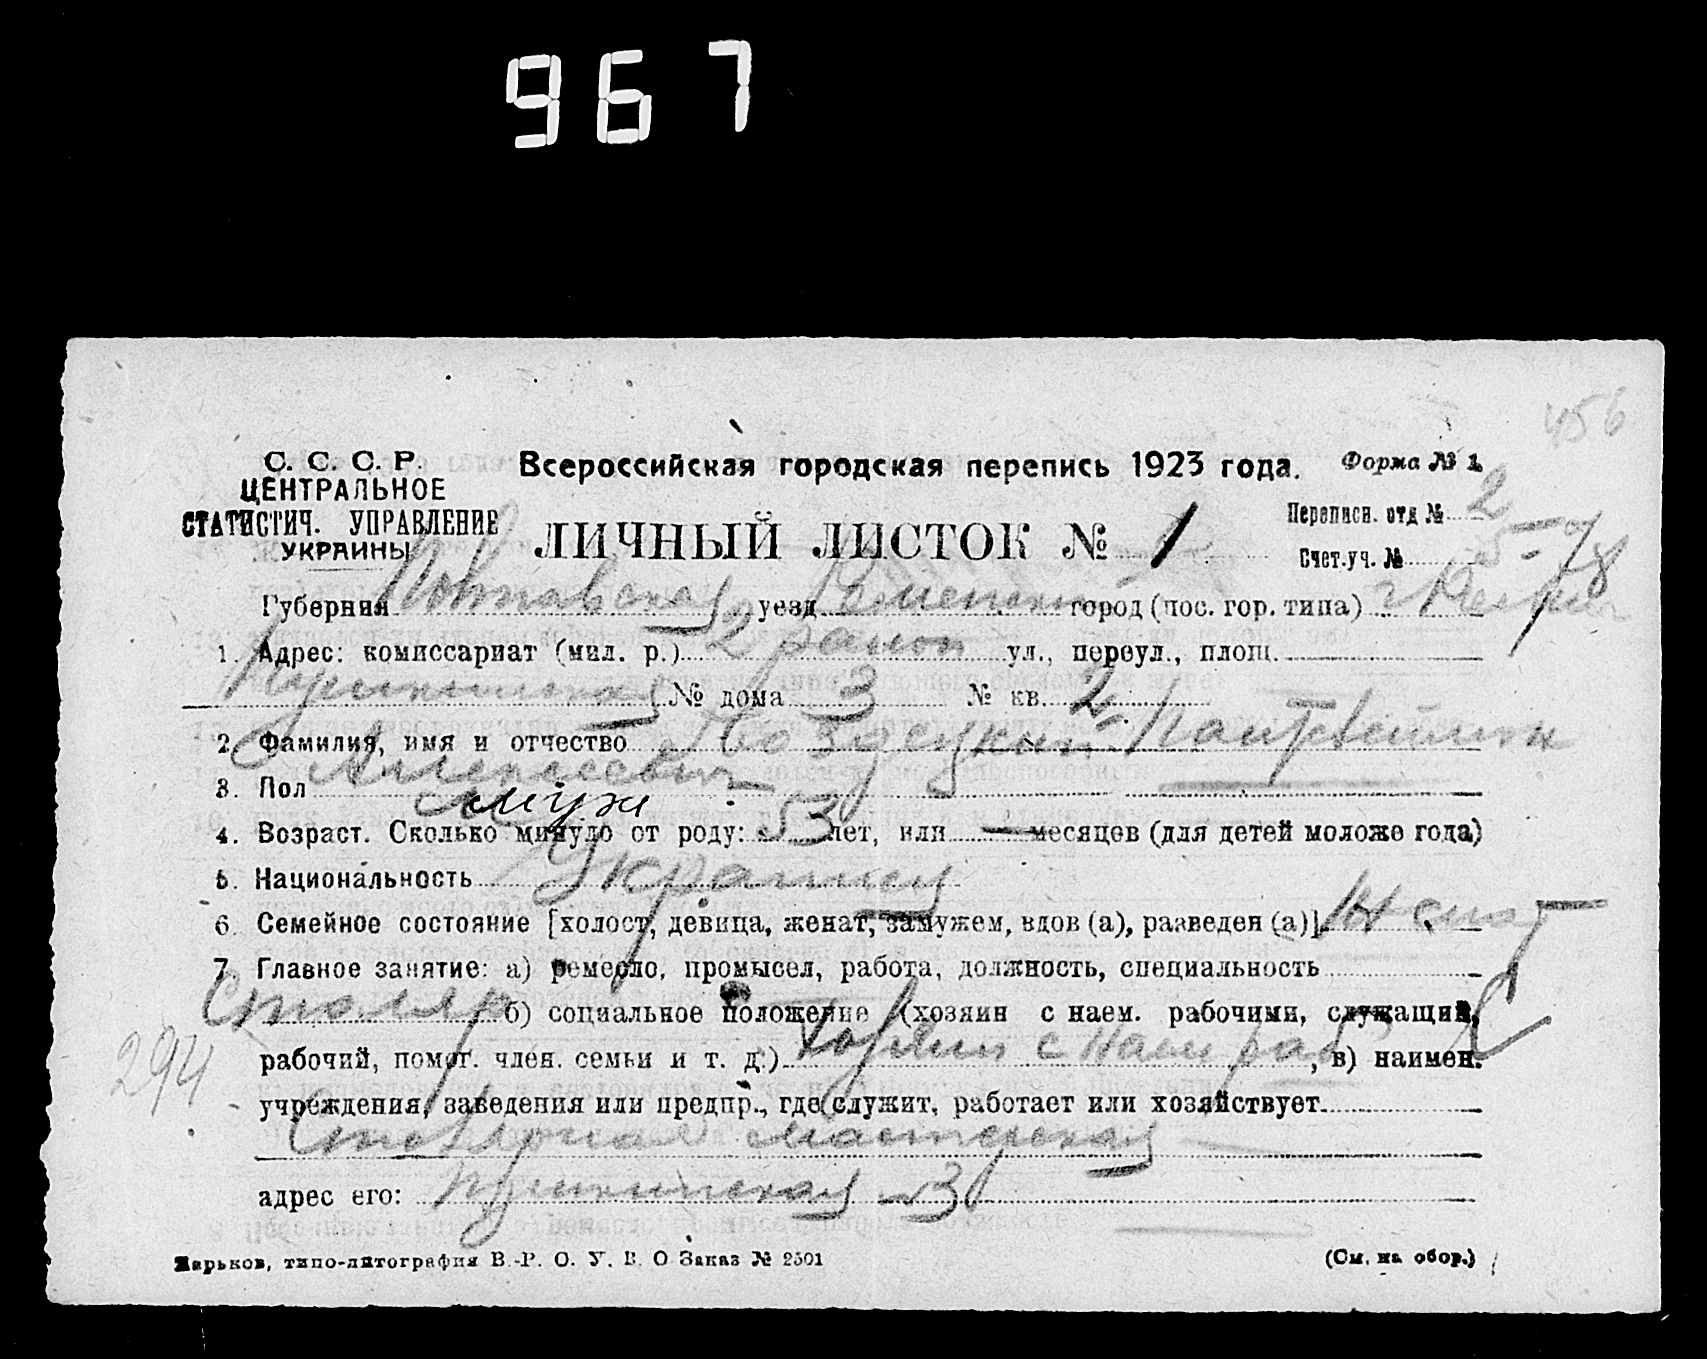 967
456
С. С. С. Р.
ЦЕНТРАЛЬНОЕ
СТАТИСТИЧ. УПРАВЛЕНИЕ
УКРАИНЫ
Всероссийская городская перепись 1923 года.
Форма № 1.
ЛИЧНЫЙ ЛИСТОК № 1
Переписн. отд № 2
Счет.-уч. № 5-
Губерния Полтавская уезд Роменский город (пос. гор. типа) г Ромны
1. Адрес: комиссариат (мил. р.) 2 район ул., переул., площ.
Пушкинская № дома 3 № кв. 2
2. Фамилия, имя и отчество Поздецкий
Алексеевич
3. Пол муж
4. Возраст. Сколько минуло от роду: 53 лет, или — месяцев (для детей моложе года)
5. Национальность Украинец
6. Семейное состояние [холост, девица, женат, замужем, вдов (а), разведен (а)] Женат
7. Главное занятие: а) ремесло, промысел, работа, должность, специальность
Столяр б) социальное положение (хозяин с наем. рабочими, служащий,
рабочий, помог. член. семьи и т. д.) Хозяин с наем раб, в) наимен.
294
учреждения, заведения или предпр., где служит, работает или хозяйствует
Столярная мастерская
адрес его: Пушкинская 3
Харьков, типо-литография В.-Р. О. У. В. О Заказ № 2501
(См. на обор.)